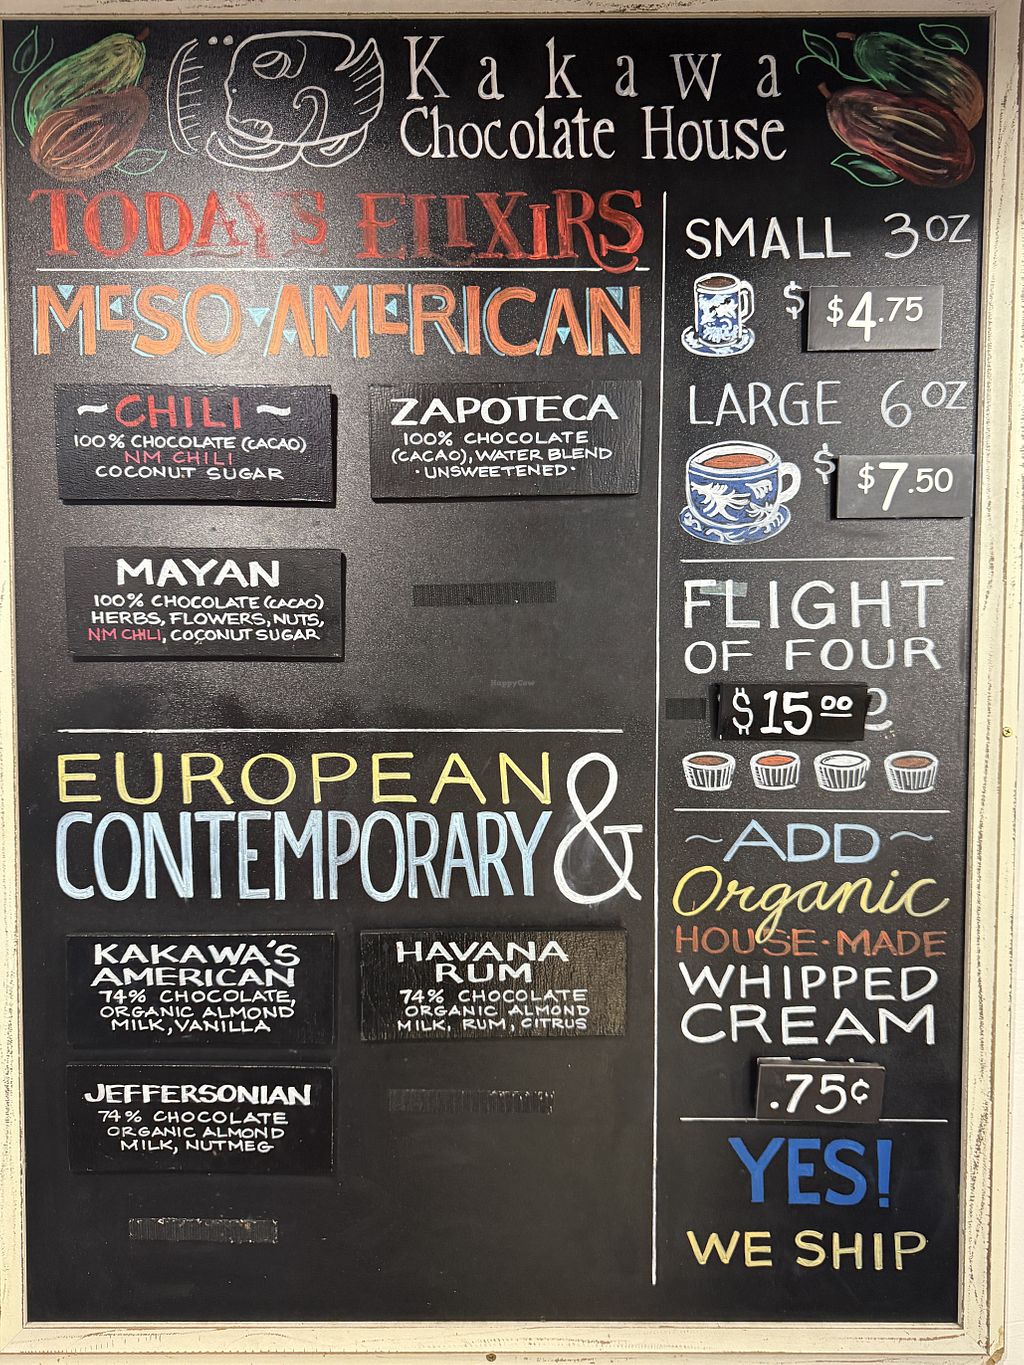 Kakawa
Chocolate House
TODAY'S ELIXIRS
MESO-AMERICAN
~CHILI~
100% CHOCOLATE (CACAO)
NM CHILI
COCONUT SUGAR
ZAPOTECA
100% CHOCOLATE
(CACAO), WATER BLEND
·UNSWEETENED·
MAYAN
100% CHOCOLATE (CACAO)
HERBS, FLOWERS, NUTS,
NM CHILI, COCONUT SUGAR
HappyCow
EUROPEAN
CONTEMPORARY &
KAKAWA'S
AMERICAN
74% CHOCOLATE,
ORGANIC ALMOND
MILK, VANILLA
HAVANA
RUM
74% CHOCOLATE
ORGANIC ALMOND
MILK, RUM, CITRUS
JEFFERSONIAN
74% CHOCOLATE
ORGANIC ALMOND
MILK, NUTMEG
SMALL 3 OZ
$ $4.75
LARGE 6 OZ
$ $7.50
FLIGHT
OF FOUR
$15.00
~ADD~
Organic
HOUSE·MADE
WHIPPED
CREAM
.75¢
YES!
WE SHIP